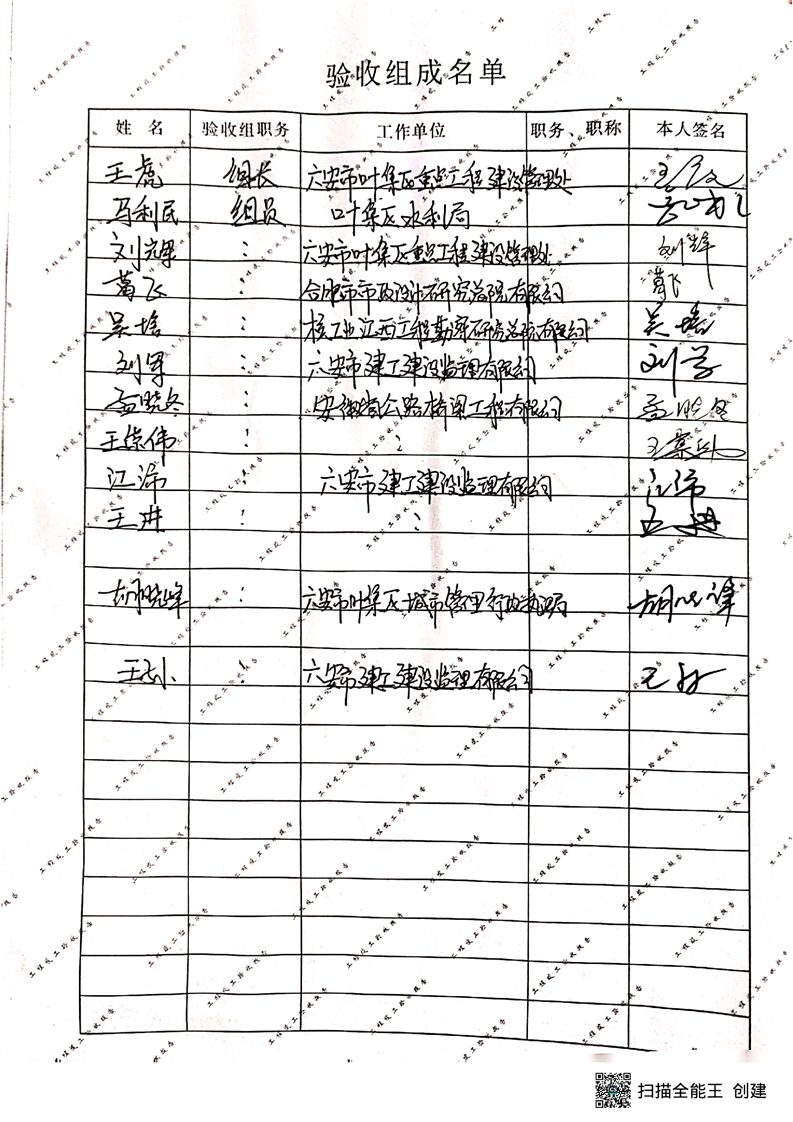 验收组成名单
姓 名 验收组职务 工作单位 职务、职称 本人签名
王虎 组长 六安市叶集区重点工程建设管理处
马利民 组员 叶集区水利局
刘先锋 : 六安市叶集区重点工程建设管理处 刘锋
葛飞 : 合肥市市政设计研究总院有限公司 葛飞
吴培 : 核工业江西工程勘察研究总院有限公司 吴培
刘军 : 六安市建工建设监理有限公司 刘军
孟晓冬 : 安徽省公路桥梁工程有限公司 孟晓冬
王荣伟 : : 王荣伟
江沛 : 六安市建工建设监理有限公司 江沛
王进 : : 王进
胡晓峰 : 六安市叶集区城市管理行政执法局 胡晓峰
王小 : 六安市建工建设监理有限公司
工程竣工验收报告
扫描全能王 创建